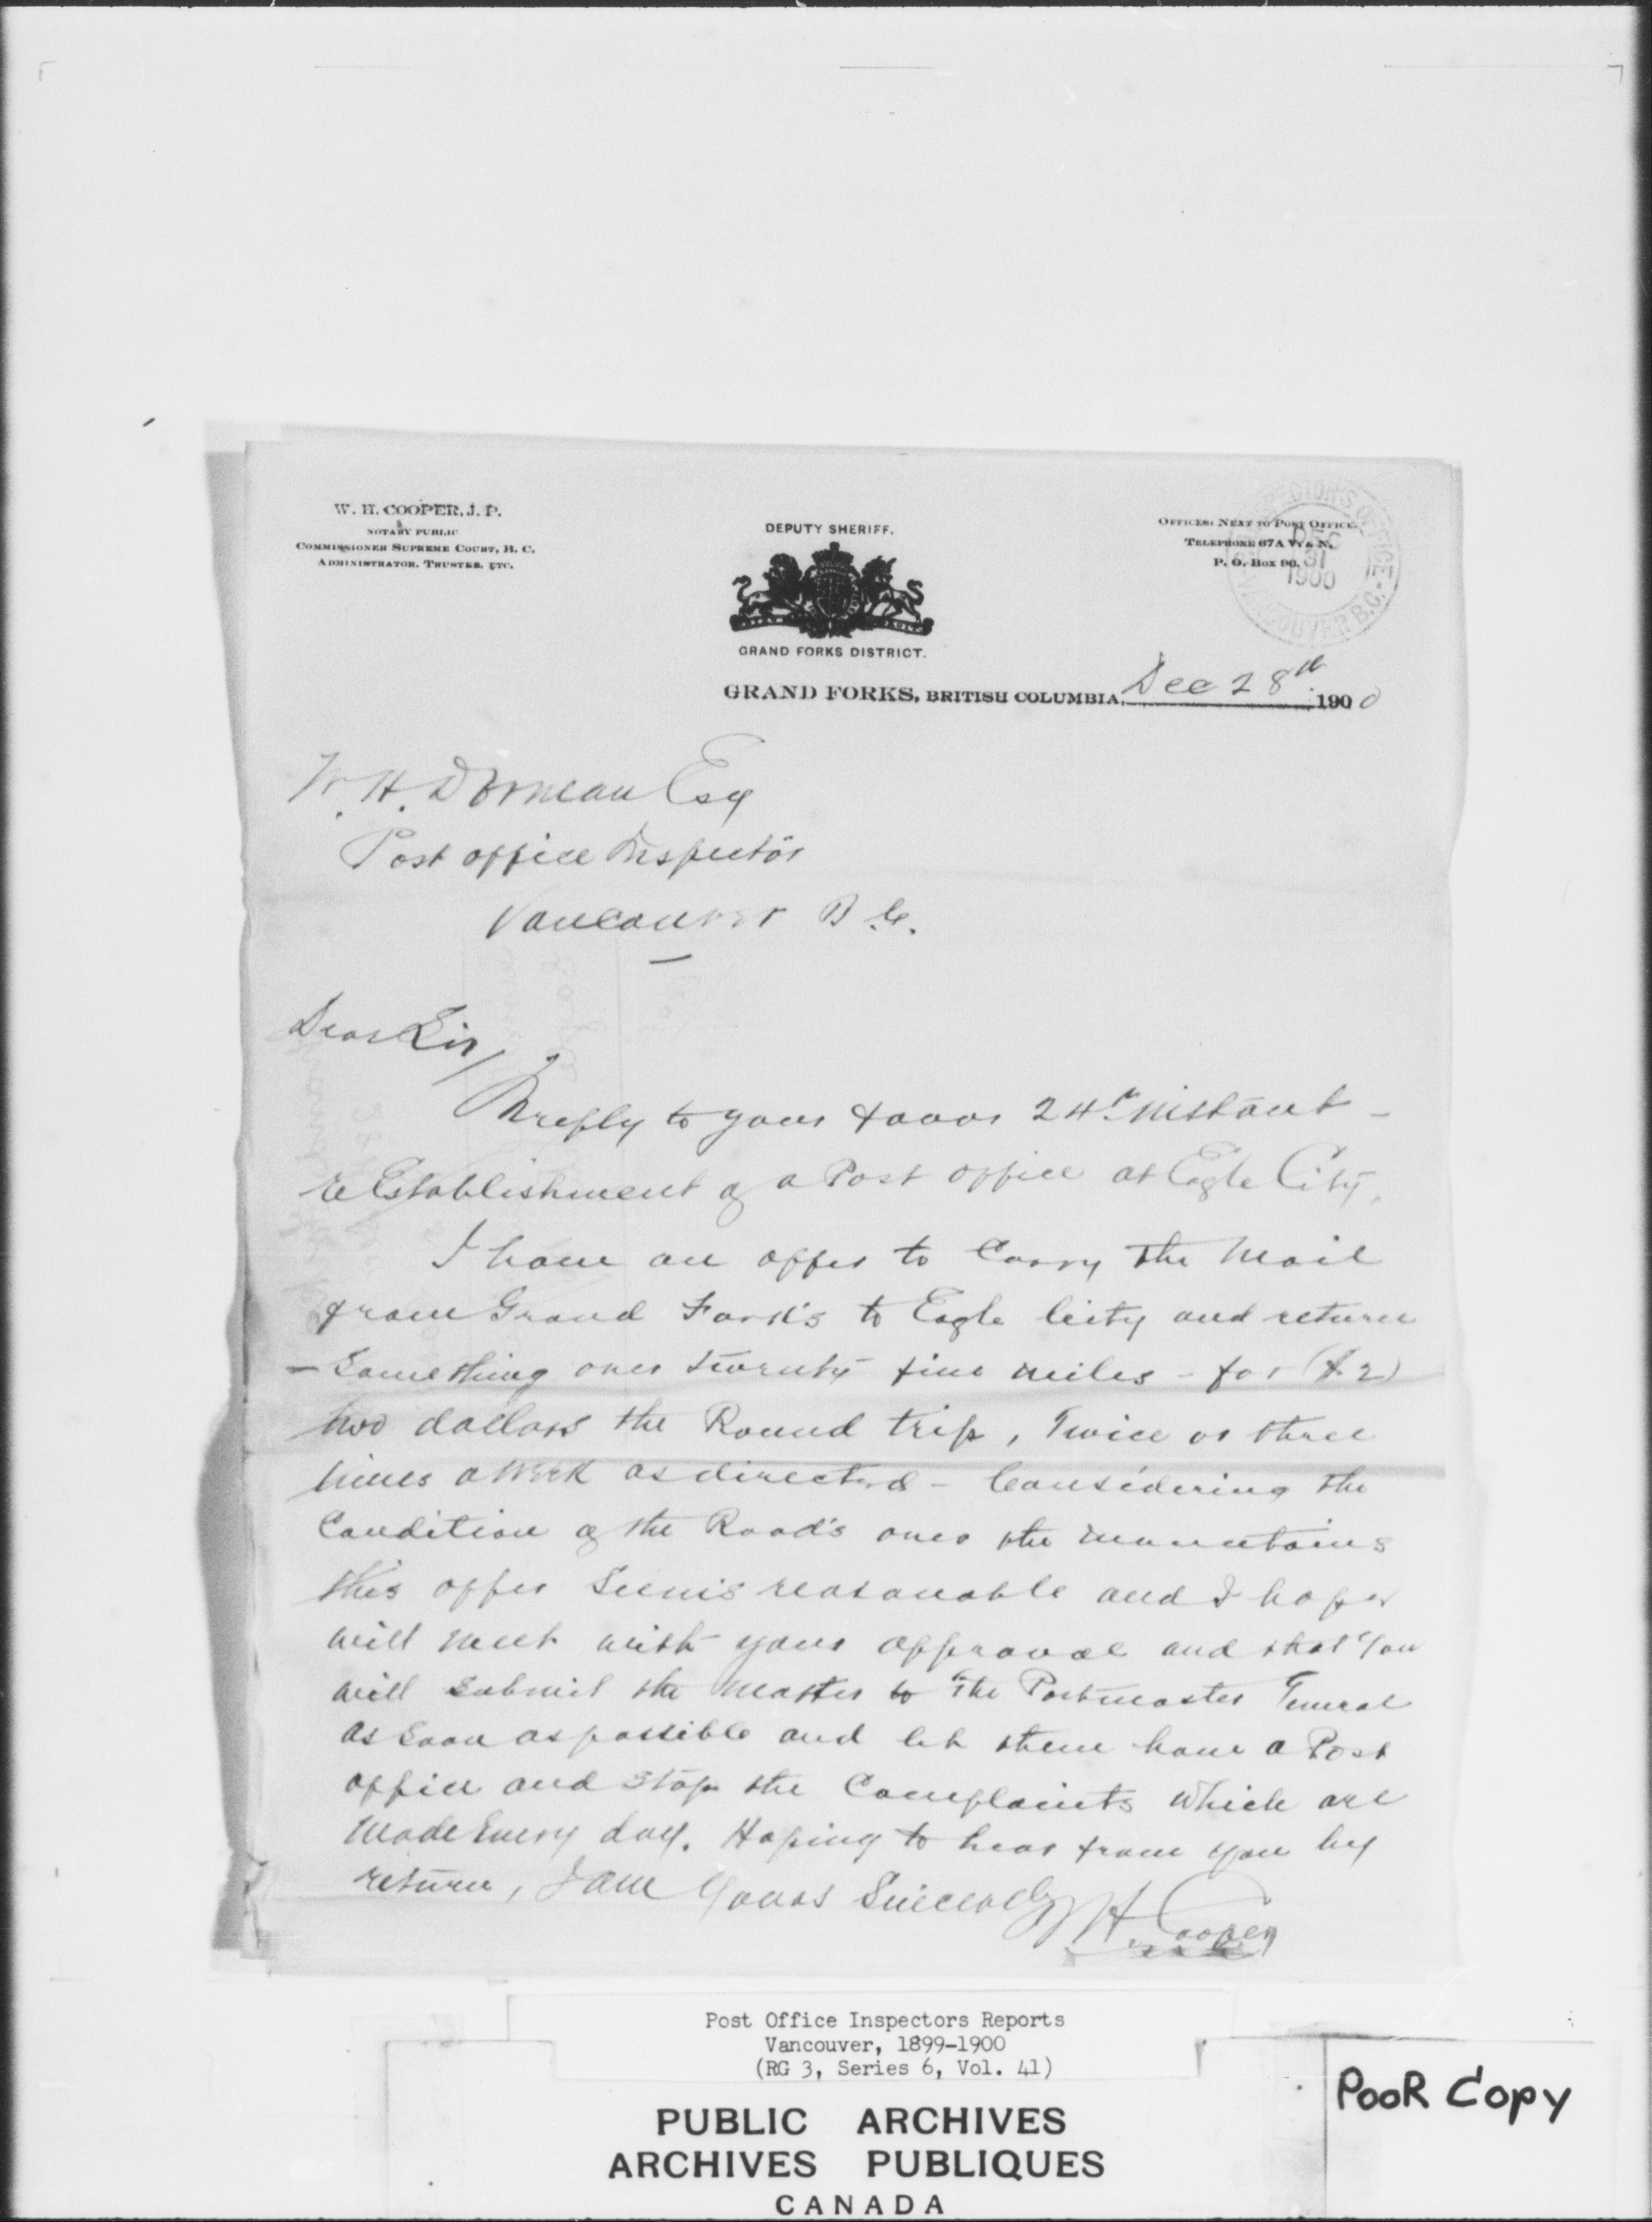 W. H. COOPER, J. P.
NOTARY PUBLIC
COMMISSIONER SUPREME COURT, B. C.
ADMINISTRATOR, TRUSTEE, ETC.
DEPUTY SHERIFF.
GRAND FORKS DISTRICT.
OFFICES: NEXT TO POST OFFICE.
TELEPHONE 67A V. & N.
P. O. Box 96.
INSPECTOR'S OFFICE
DEC
31
1900
VANCOUVER B.C.
GRAND FORKS, BRITISH COLUMBIA, Dec 28th 1900
W. H. Dorman Esq
Post office Inspector
Vancouver B.C.
Dear Sir,
In reply to your favor 24th instant -
re Establishment of a Post office at Eagle City,
I have an offer to Carry The Mail
from Grand Fork's to Eagle City and return
- Something over twenty five miles - for ($2)
two dollars the Round trip, Twice or three
times a week as directed - Considering the
Condition of the Road's over the mountains
this offer seems reasonable and I hope
will meet with your approval and that You
will submit the matter to The Postmaster General
as soon as possible and let them have a Post
office and stop the Complaints which are
Made Every day. Hoping to hear from you by
return, I am Yours Sincerely
W H Cooper
Post Office Inspectors Reports
Vancouver, 1899-1900
(RG 3, Series 6, Vol. 41)
PUBLIC ARCHIVES
ARCHIVES PUBLIQUES
CANADA
PooR Copy